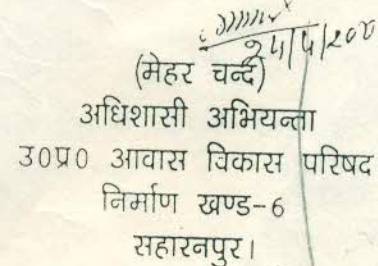 (मेहर चन्द)
अधिशासी अभियन्ता
उ0प्र0 आवास विकास परिषद
निर्माण खण्ड-6
सहारनपुर।